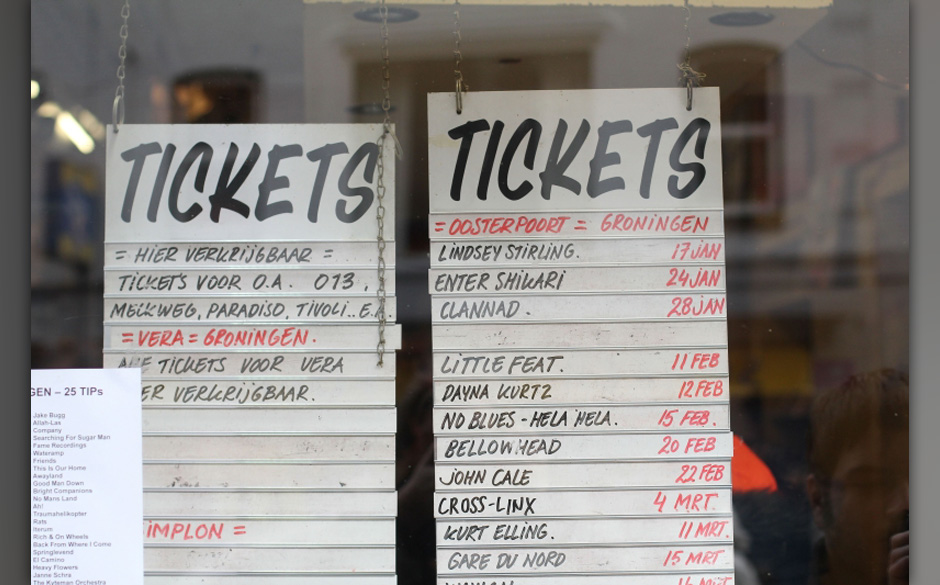 TICKETS
= HIER VERKRIJGBAAR =
TICKETS VOOR O.A. 013,
MELKWEG, PARADISO, TIVOLI..E.A.
= VERA = GRONINGEN.
TICKETS VOOR VERA
VERKRIJGBAAR.
IMPLON =
TICKETS
= OOSTERPOORT = GRONINGEN
LINDSEY STIRLING. 17 JAN
ENTER SHIKARI 24 JAN
CLANNAD. 28 JAN
LITTLE FEAT. 11 FEB
DAYNA KURTZ 12 FEB
NO BLUES - HELA HELA. 15 FEB.
BELLOWHEAD 20 FEB
JOHN CALE 22 FEB
CROSS-LINX 4 MRT.
KURT ELLING. 11 MRT.
GARE DU NORD 15 MRT
GEN – 25 TIPs
Jake Bugg
Allah-Las
Company
Searching For Sugar Man
Fame Recordings
Wateramp
Friends
This Is Our Home
Awayland
Good Man Down
Bright Companions
No Mans Land
Ah!
Traumahelikopter
Rats
Iterum
Rich & On Wheels
Back From Where I Come
Springlevend
El Camino
Heavy Flowers
Janne Schra
The Kyteman Orchestra